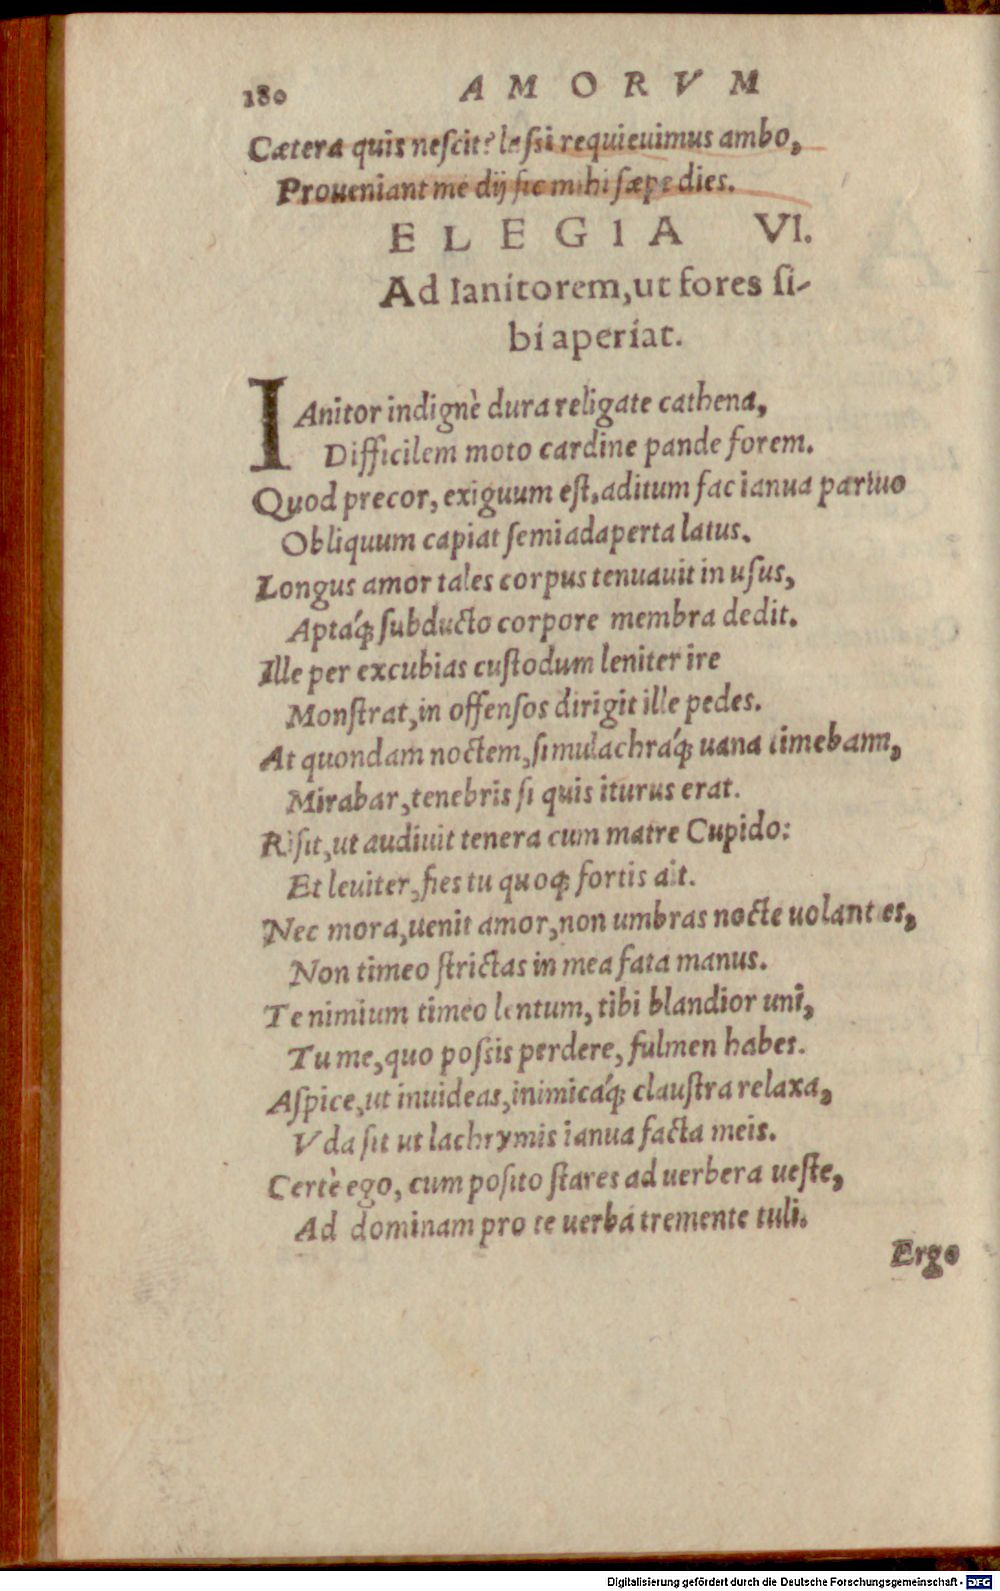 180 AMORVM
Cætera quis neſcit? laſsi requieuimus ambo,
Proueniant me dij ſic mihi ſæpe dies.
ELEGIA VI.
Ad Ianitorem, ut fores ſi-
bi aperiat.
IAnitor indignè dura religate cathena,
Difficilem moto cardine pande forem.
Quod precor, exiguum eſt, aditum fac ianua paruo
Obliquum capiat ſemiadaperta latus.
Longus amor tales corpus tenuauit in uſus,
Aptáq; ſubducto corpore membra dedit.
Ille per excubias cuſtodum leniter ire
Monſtrat, in offenſos dirigit ille pedes.
At quondam noctem, ſimulachráq; uana timebam,
Mirabar, tenebris ſi quis iturus erat.
Riſit, ut audiuit tenera cum matre Cupido:
Et leuiter, fies tu quoq; fortis ait.
Nec mora, uenit amor, non umbras nocte uolantes,
Non timeo ſtrictas in mea fata manus.
Te nimium timeo lentum, tibi blandior uni,
Tu me, quo poſsis perdere, fulmen habes.
Aſpice, ut inuideas, inimicáq; clauſtra relaxa,
Vda ſit ut lachrymis ianua facta meis.
Certè ego, cum poſito ſtares ad uerbera ueſte,
Ad dominam pro te uerba tremente tuli.
Ergo
Digitalisierung gefördert durch die Deutsche Forschungsgemeinschaft - DFG